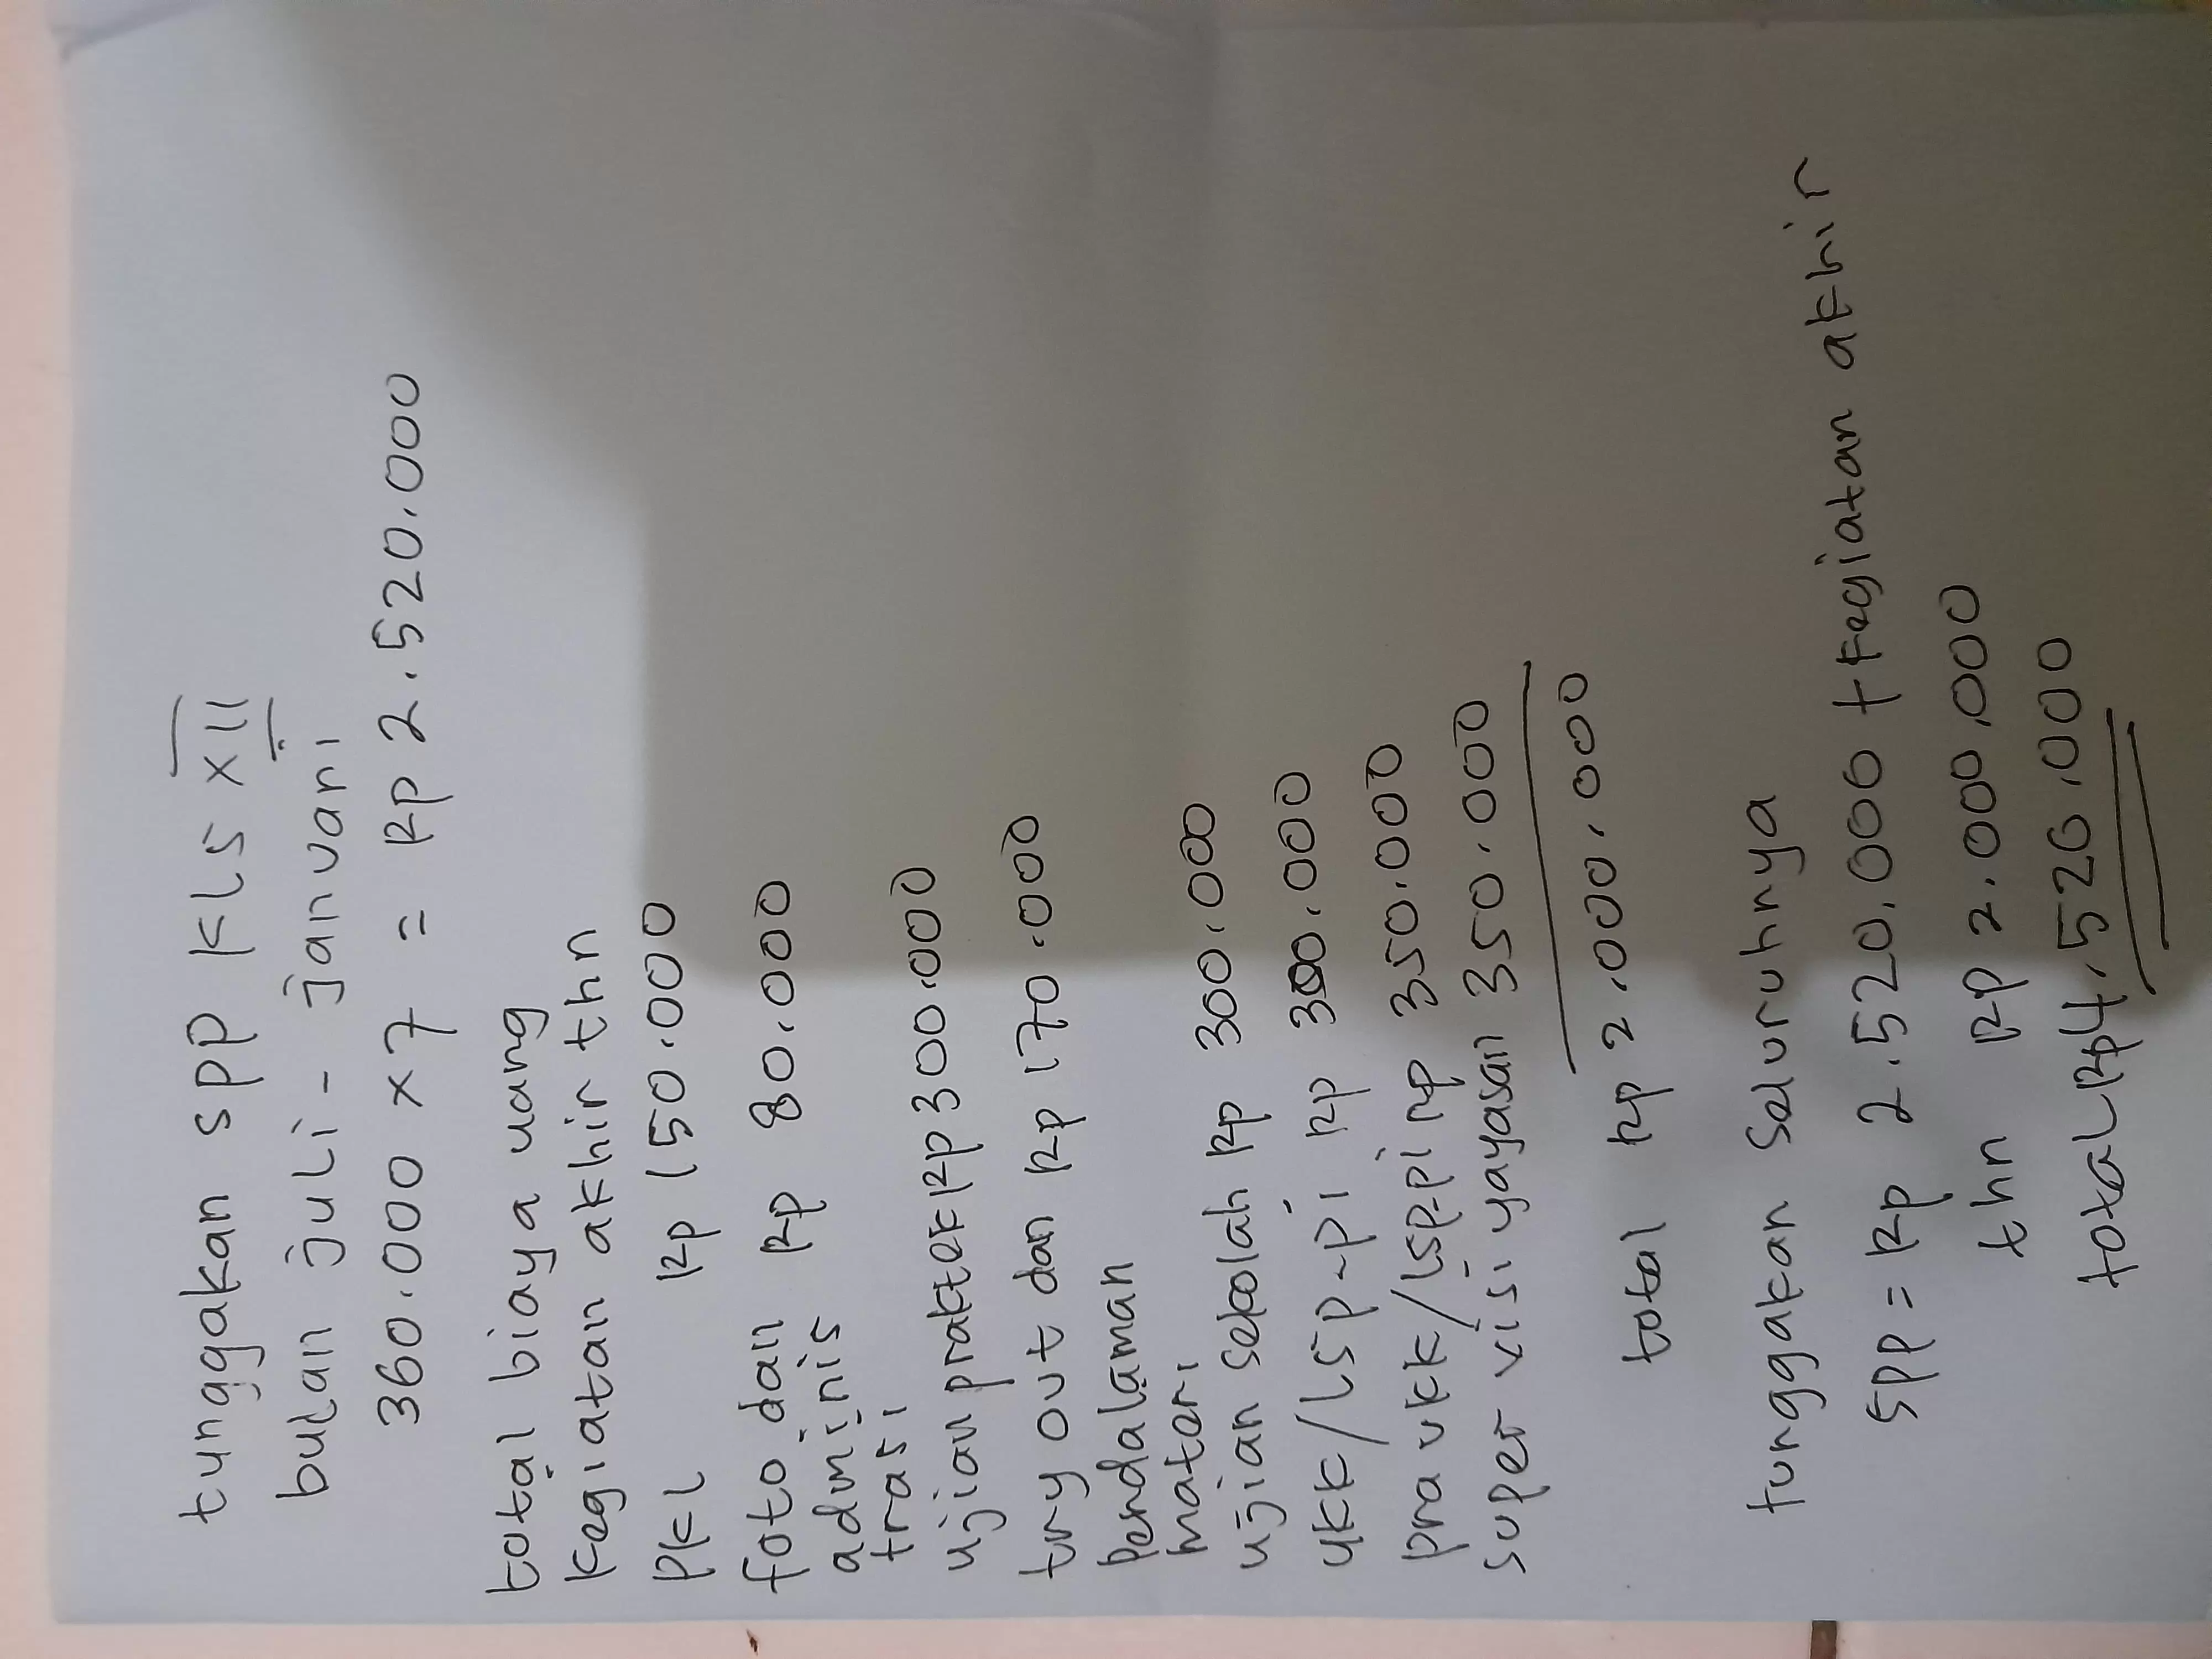 tunggakan spp kls XII
bulan juli - januari
360.000 x 7 = Rp 2.520.000
total biaya uang
kegiatan akhir thn
PKL Rp 150.000
foto dan Rp 80.000
adminis
trasi
ujian praktek Rp 300.000
try out dan Rp 170.000
Pendalaman
materi
ujian sekolah Rp 300.000
ukk/LSP-pi Rp 300.000
pra ukk/LSP-pi Rp 350.000
super visi yayasan 350.000
total Rp 2.000.000
tunggakan seluruhnya
SPP = Rp 2.520.000 + kegiatan akhir
thn Rp 2.000.000
total Rp4.520.000